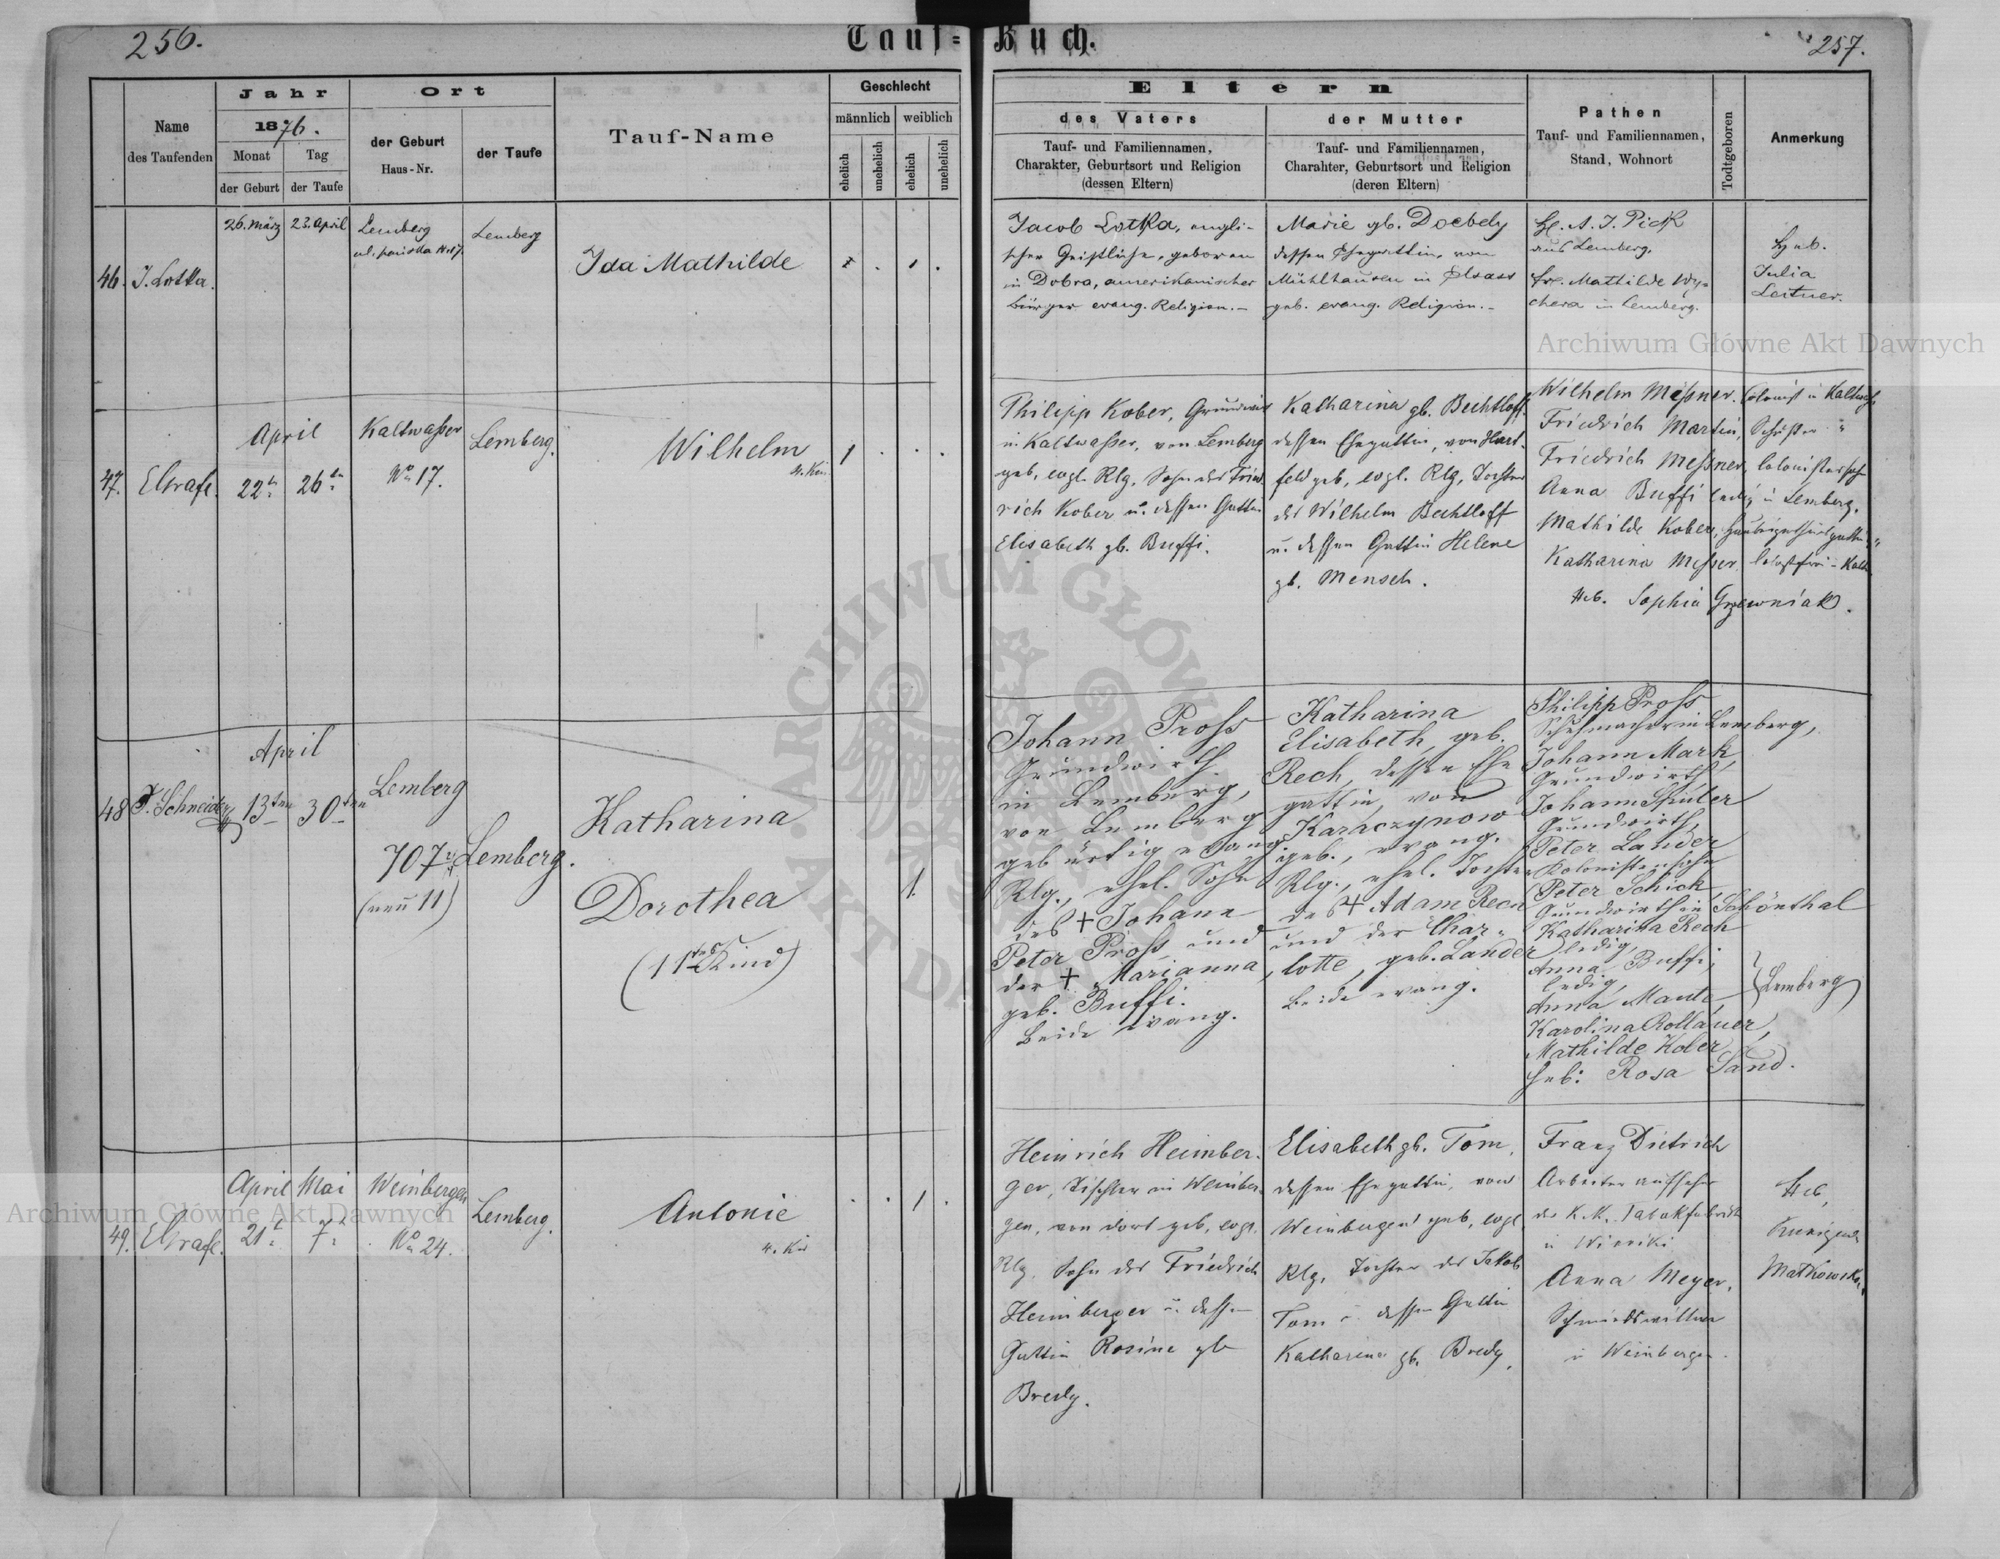 256.
Tauf-Buch.
257.
Name
des Taufenden
Jahr
1876.
Monat
der Geburt
Tag
der Taufe
Ort
der Geburt
Haus-Nr.
der Taufe
Tauf-Name
Geschlecht
männlich
weiblich
ehelich
unehelich
ehelich
unehelich
Eltern
des Vaters
Tauf- und Familiennamen,
Charakter, Geburtsort und Religion
(dessen Eltern)
der Mutter
Tauf- und Familiennamen,
Charakter, Geburtsort und Religion
(deren Eltern)
Pathen
Tauf- und Familiennamen,
Stand, Wohnort
Todtgeboren
Anmerkung
46.
J. Lotka.
26. März
23. April
Lemberg
Lemberg
Ida Mathilde
Jacob Lotka, engli-
scher Geistlicher, geboren
in Dobra, amerikanischer
Bürger evang. Religion.-
Marie gb. Doebely
dessen Ehegattin, von
Mühlhausen in Elsass
geb. evang. Religion.-
H. A. J. Pick
aus Lemberg.
Fr. Mathilde Wy-
chera in Lemberg.
Heb.
Julia
Leitner.
Archiwum Główne Akt Dawnych
47.
EGrafe.
April
22t.
26ten
Kaltwaßer
No 17.
Lemberg.
Wilhelm
4. Kin
1
Philipp Kober, Grundwirt
in Kaltwaßer, von Lemberg
geb, evgl. Rlg. Sohn des Fried
rich Kober u. dessen Gattin
Elisabeth gb. Buffi.
Katharina gb. Bechtloff
dessen Ehegattin, von Hart-
feld geb, evgl. Rlg, Tochter
des Wilhelm Bechtloff
u. dessen Gattin Helene
gb. Mensch.
Wilhelm Meßner. Colonist in Kaltwaß
Friedrich Martini, Schuster "
Friedrich Meßner, Colonistensohn
Anna Buffi ledig in Lemberg.
Mathilde Kober,
Katharina Meßner.
Heb. Sophia Grzewniak.
48
J. Schneider
April
13ten
30ten
Lemberg
707
(neu 11)
Lemberg.
Katharina
Dorothea
(11tes Kind)
1.
Johann Proß
Grundwirth
in Lemberg,
von Lemberg
gebürtig evang.
Rlg., ehel. Sohn
des + Johann
Peter Proß und
der + Marianna,
geb. Buffi.
Beide evang.
Katharina
Elisabeth, geb.
Rech, dessen Ehe
gattin, von
Karaczynow
geb., evang.
Rlg., ehel. Tochter
des + Adam Rech
und der Char-
lotte, geb. Lander
Beide evang.
Philipp Proß
Schuhmacher in Lemberg,
Johann Mark,
Grundwirth
Johann Spüler
Grundwirth,
Peter Lander
Kolonistensohn
Peter Schick
Grundwirth in Schönthal
Katharina Rech
ledig,
Anna Buffi,
ledig,
Anna Mantz
Karolina Rollauer,
Mathilde Kober
Lemberg
Heb: Rosa Sand.
49.
EGrafe.
April
21t.
Mai
7t.
Weinbergen
No 24.
Lemberg.
Antonie
4. Kin
1
Heinrich Heimber-
ger, Tischler in Weinber-
gen, von dort geb, evgl.
Rlg, Sohn des Friedrich
Heimberger u. dessen
Gattin Rosine gb
Bredy.
Elisabeth gb. Tom,
dessen Ehegattin, von
Weinbergen geb, evgl
Rlg, Tochter des Jakob
Tom u. dessen Gattin
Katharina gb. Bredy.
Franz Dietrich
Arbeiteraufseher
der K. K. Tabakfabrik
in Winniki
Anna Meyer,
Schmiedswittwe
in Weinbergen.
Heb,
Kunigunde
Matkowska.
Archiwum Główne Akt Dawnych